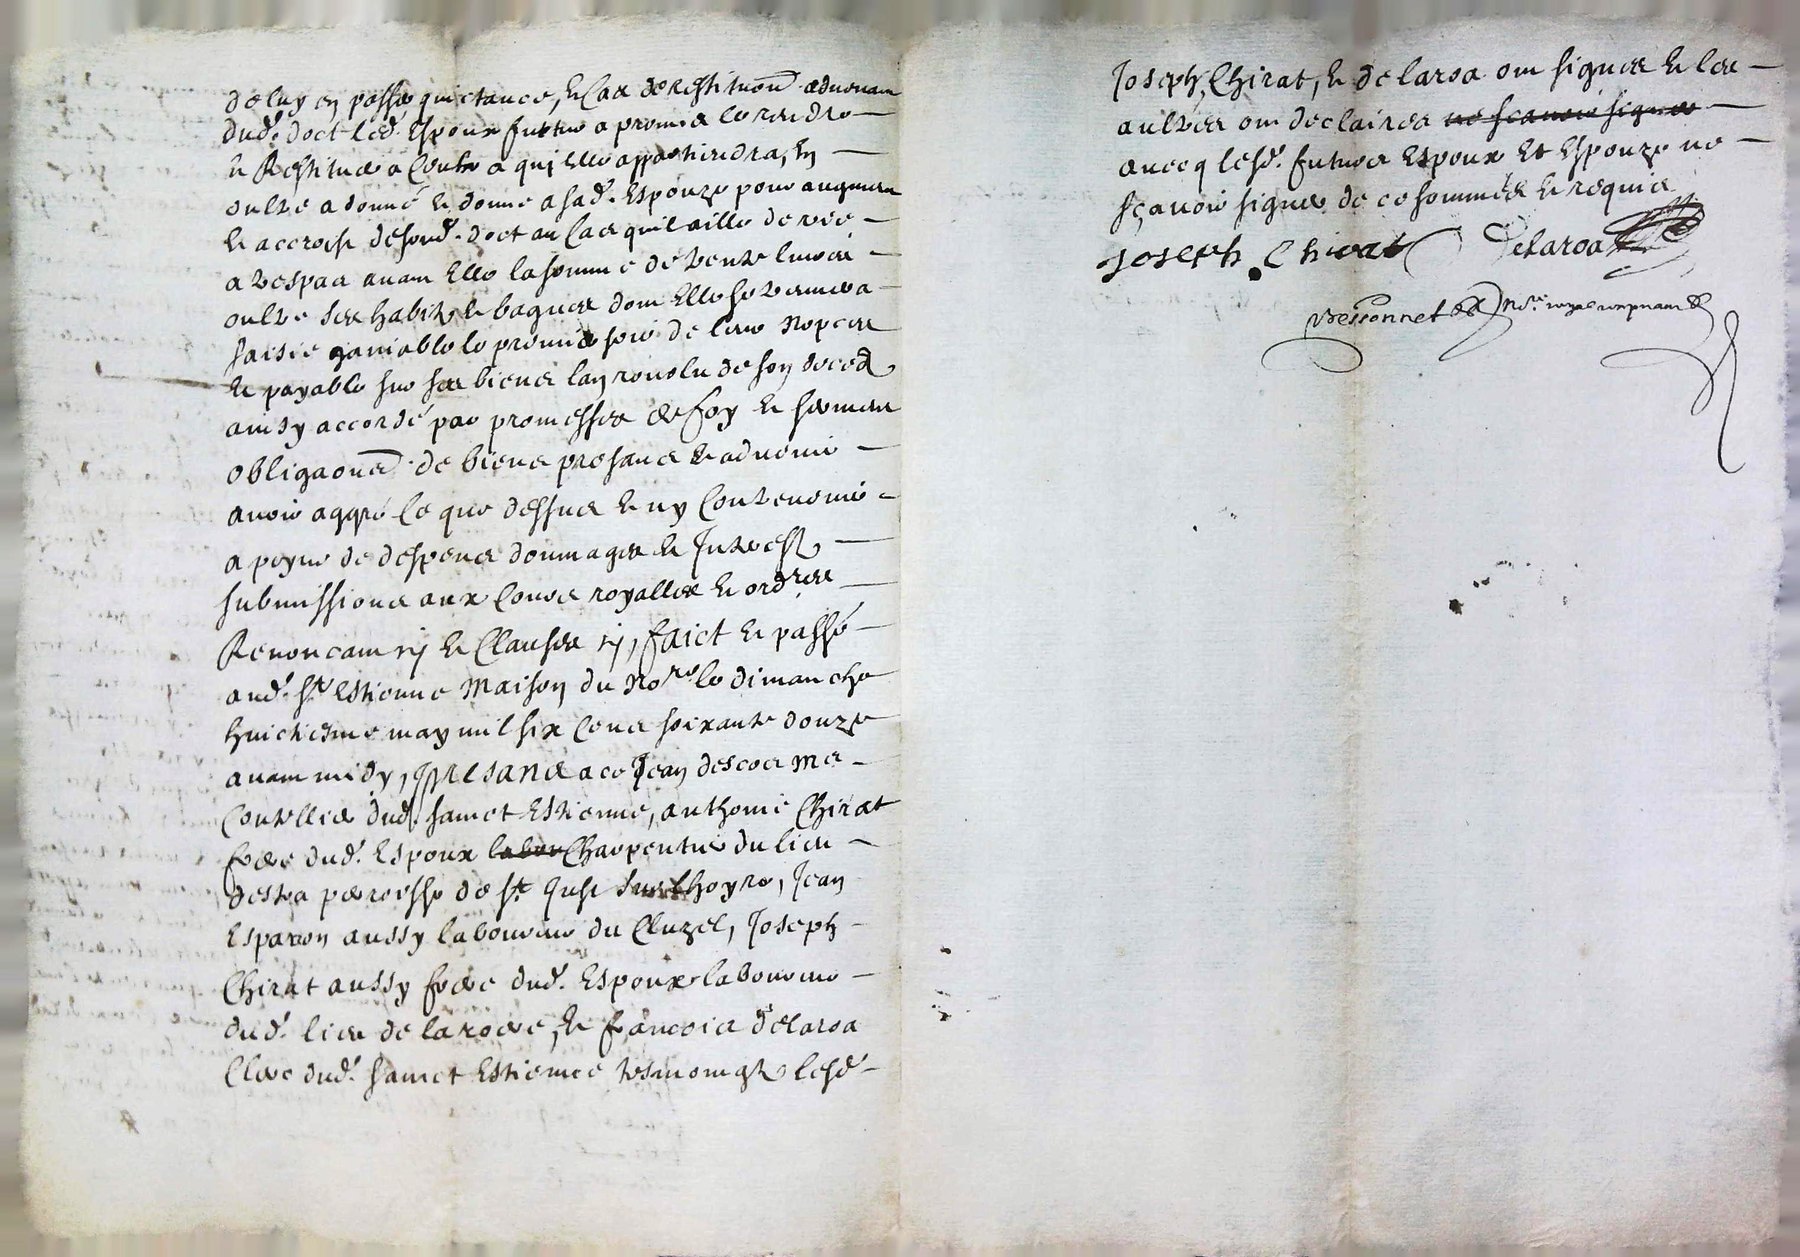 de luy en passer quictance, et cas de restitu͠on advenant
dud. doct led. Espoux futur a promis le rendre
et Restituer a Ceulx a quj Elle appartiendra, En
oultre a donné et donne a sad. Espouze pour augment
et accroist de sond. doct au Cas quil aille de vie
a trespas avant Elle la somme de trente livres
oultre ses habitz et bagues dont Elle se trouvera
saisie ganiable le premier soir de leurs Nopces
et payable sur ses biens lan revolu de son deces
ainsy accordé par promesses de foy et serment
obliga͠ons de biens presans et advenir
avoir aggré Ce que dessus et ny Contrevenir
a peyne de despens dommages et Interestz
submissions aux Cours royalles et ord.res
Renonceant rj et Clauses rj, faict et passé
aud. St Estienne Maison du No.re le dimanche
huictiesme may mil six Cens soixante douze
avant midy, presans a ce Jean descos Me
Coutellier dud. sainct Estienne, anthoine Chirat
frere dud. Espoux labou Charpentier du lieu
destra parroisse de St Just Sur Lhoyre, Jean
Esparron aussy laboureur du Cluzel, Joseph
Chirat aussy frere dud. Espoux laboureur
dud. lieu de la roere, et francois delaroa
Clerc dud. sainct Estienne tesmoingtz lesd.
Joseph Chirat, et delaroa ont signés et les
aultres ont declairés ne scavoir signer
avecq lesd. futurs Espoux Et Espouze ne
sçavoir signer de ce sommés et requis
Joseph Chirat Delaroa
Bessonnet No.re royal